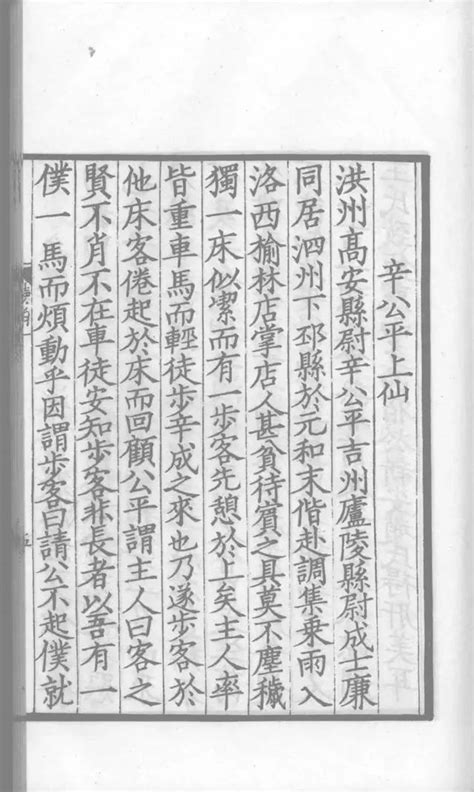 辛公平上仙
洪州髙安縣尉辛公平吉州廬陵縣尉成士廉
同居泗州下邳縣於元和末偕赴調集乘雨入
洛西榆林店掌店人甚貧待賓之具莫不塵穢
獨一床似潔而有一步客先憩於上矣主人率
皆重車馬而輕徒步辛成之來也乃遂步客於
他床客倦起於床而回顧公平謂主人曰客之
賢不肖不在車徒安知步客非長者以吾有一
僕一馬而煩動乎因謂步客曰請公不起僕就